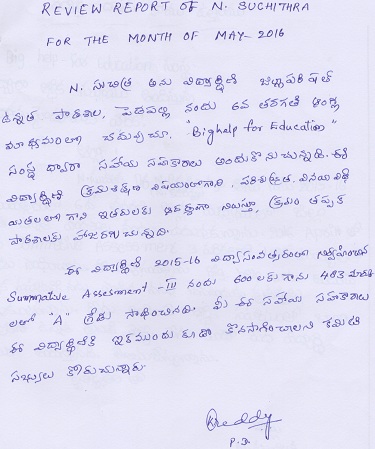 REVIEW REPORT OF N. SUCHITHRA
FOR THE MONTH OF MAY-2016
N. సుచిత్ర అను విద్యార్థిని జిల్లాపరిషత్
ఉన్నత పాఠశాల, పెదపల్లి నందు 6వ తరగతి ఆంగ్ల
మాధ్యమంలో చదువుచూ, "Bighelp for Education"
సంస్థ ద్వారా సహాయ సహకారాలు అందుకొనుచున్నది. ఈ
విద్యార్థిని క్రమశిక్షణ విషయంలోగాని, పరిశుభ్రత, వినయ విధే
యతలలో గాని ఇతరులకు ఆదర్శంగా నిలుస్తూ, క్రమం తప్పక
పాఠశాలకు హాజరగుచున్నది.
ఈ విద్యార్థిని 2015-16 విద్యాసంవత్సరంలో నిర్వహించిన
Summative Assessment - III నందు 600 లకు గాను 483 మార్కు
లతో "A" గ్రేడు సాధించినది. మీ ఈ సహాయ సహకారాలు
ఈ విద్యార్థినికి ఇకముందు కూడా కొనసాగించాలని కమిటి
సభ్యులు కోరుచున్నారు.
Reddy
P.D.